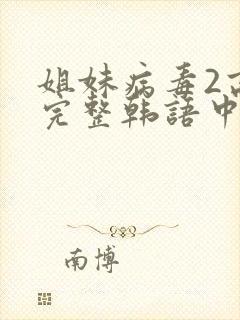 姐妹病毒2高
完整韩語中
南博